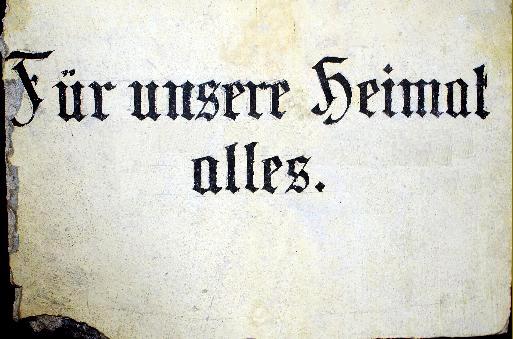 Für unsere Heimat
alles.